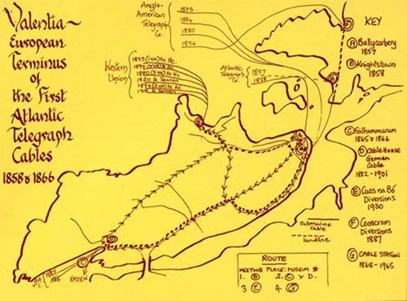 Valentia~
European
Terminus
of
the First
Atlantic
Telegraph
Cables
1858 & 1866
Anglo-
American
Telegraph
Co.
1873
1874
1880
1894
Western
Union
Atlantic
Telegraph
Co.
1857
1858
KEY
Ⓐ Ballycarbery
1857
Ⓑ Knightstown
1858
Ⓒ Foilhommurum
1865 & 1866
Ⓓ Cable House
German
Cable
1882-1901
Ⓔ Cuas na Bó
Diversions
1930
Ⓕ Cooscrom
Diversions
1887
Ⓖ Cable Station
1868-1965
Submarine
Cable
landline
Route
Meeting Place: Museum *
1. Ⓑ 2. Ⓒ & D.
3 Ⓔ 4. Ⓖ
Emden